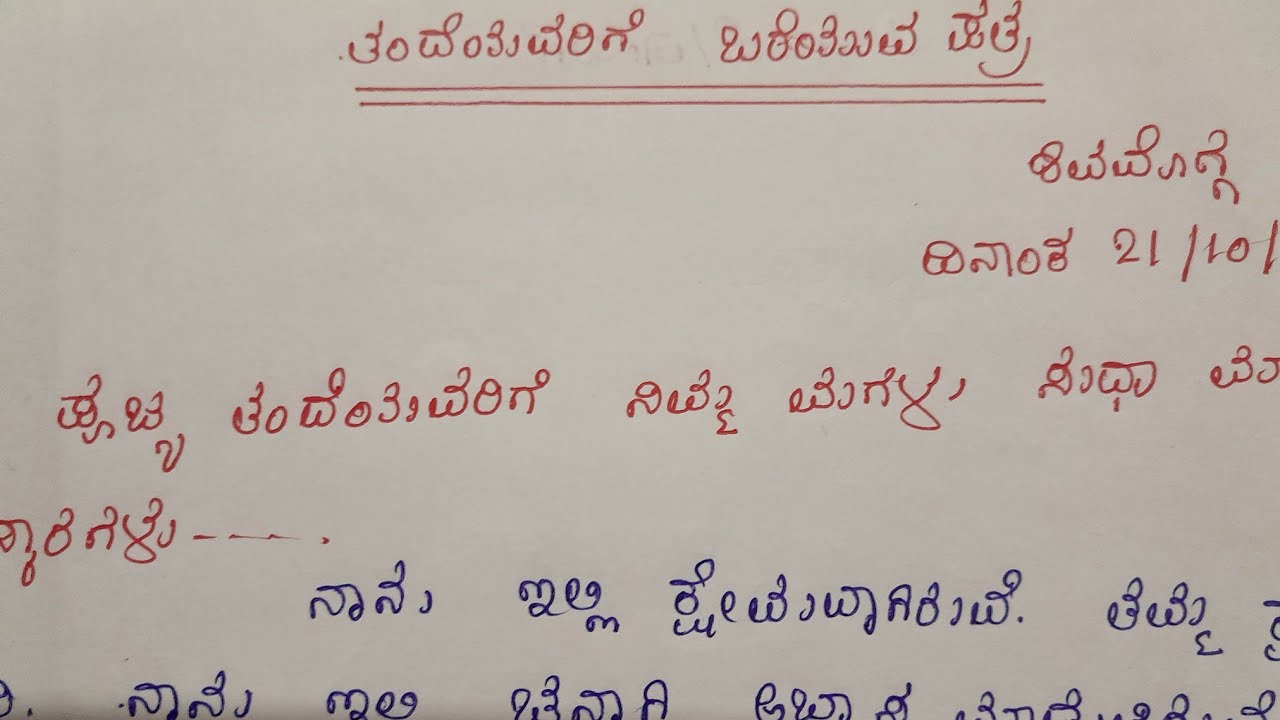 ತಂದೆಯವರಿಗೆ ಬರೆಯುವ ಪತ್ರ
ಶಿವಮೊಗ್ಗ
ದಿನಾಂಕ 21/10/
ಪೂಜ್ಯ ತಂದೆಯವರಿಗೆ ನಿಮ್ಮ ಮಗಳು ಸುಧಾ ಮಾ
ಸ್ಕಾರಗಳು ----.
ನಾನು ಇಲ್ಲಿ ಕ್ಷೇಮವಾಗಿರುವೆ. ತಮ್ಮ
ನಾನು ಇಲ್ಲಿ ಚೆನ್ನಾಗಿ